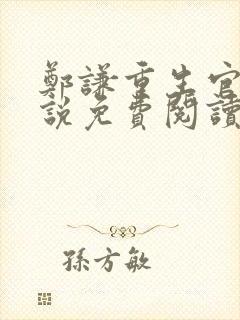 鄭謙重生官
說免費閱讀
孫方敏